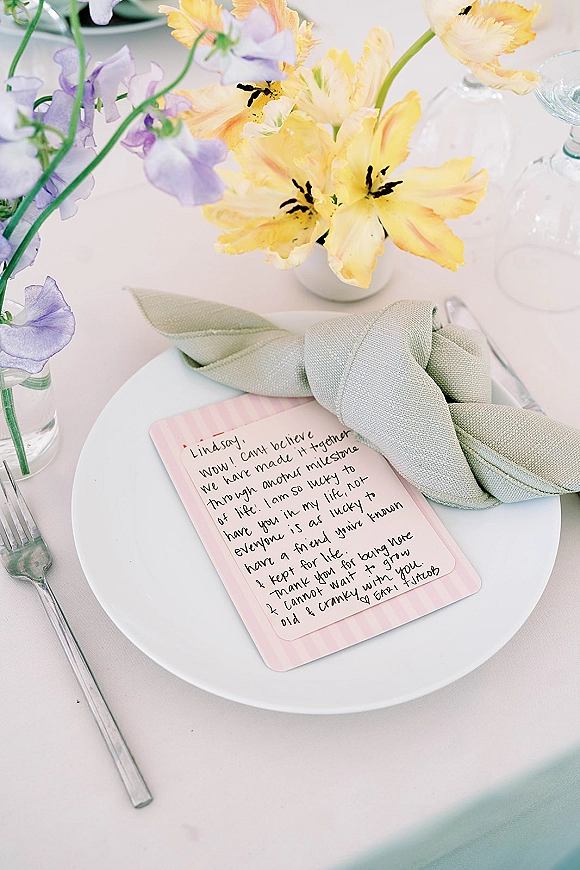 Lindsay,
Wow! Cant believe
we have made it together
through another milestone
of life. I am so lucky to
have you in my life, not
everyone is as lucky to
have a friend you've known
& kept for life.
Thank you for being here
& cannot wait to grow
old & cranky with you
♡ EARI & JACOB